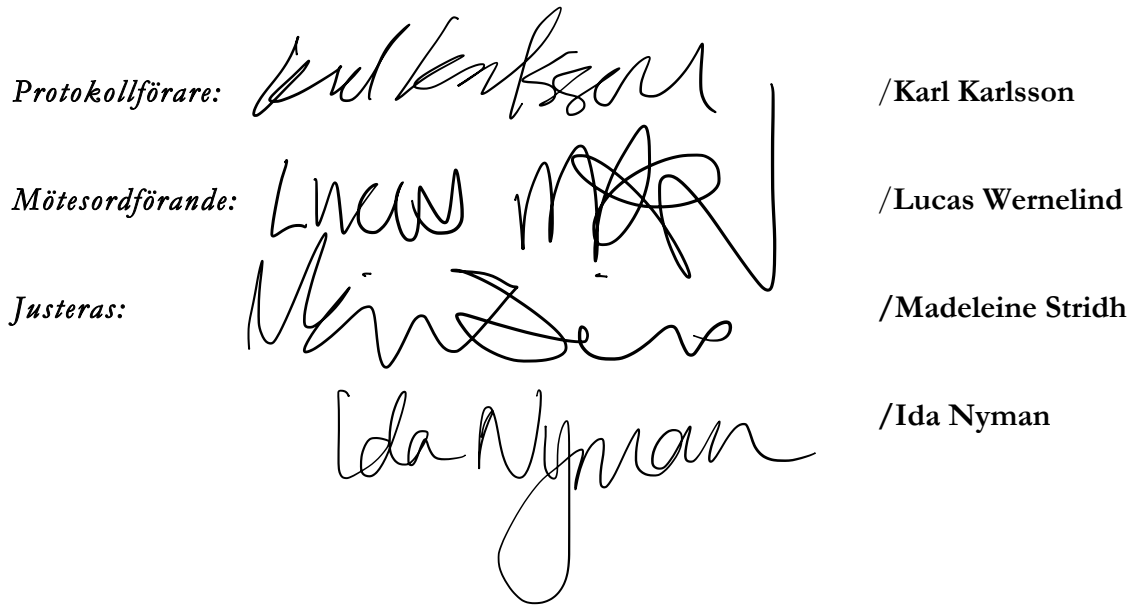 Protokollförare: Karl Karlsson /Karl Karlsson
Mötesordförande: Lucas /Lucas Wernelind
Justeras: /Madeleine Stridh
Ida Nyman /Ida Nyman